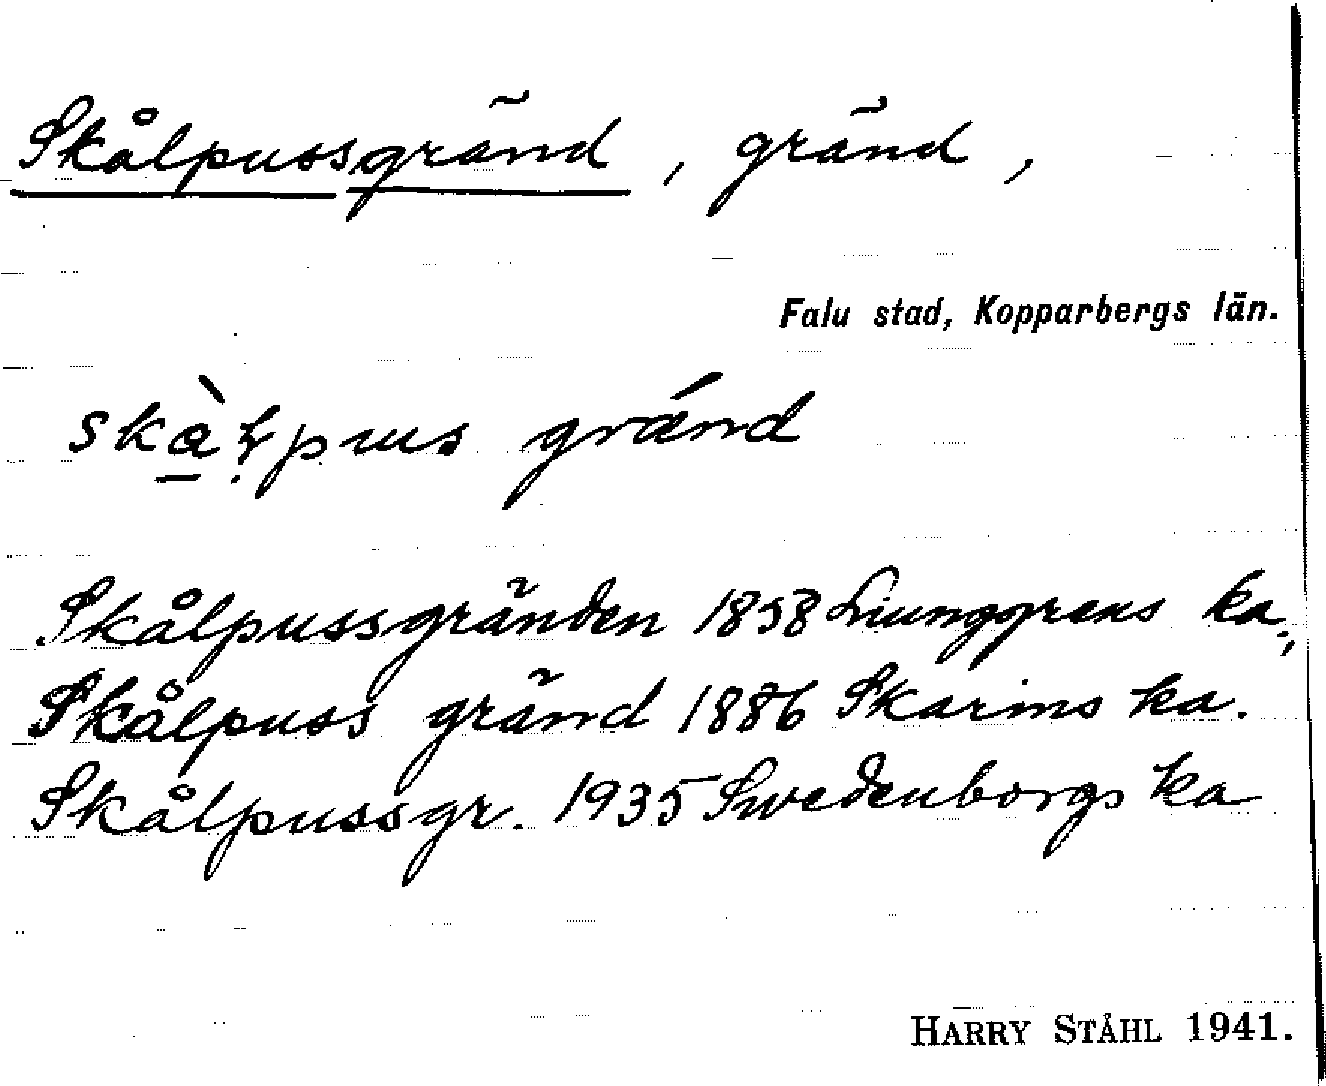 Skålpussgränd, gränd,
Falu stad, Kopparbergs län.
gränd
Skålpussgränden 1858 Ljunggrens ka.,
Skålpuss gränd 1886 Skarins ka.
Skålpussgr. 1935 Swedenborgs ka
HARRY STÅHL 1941.